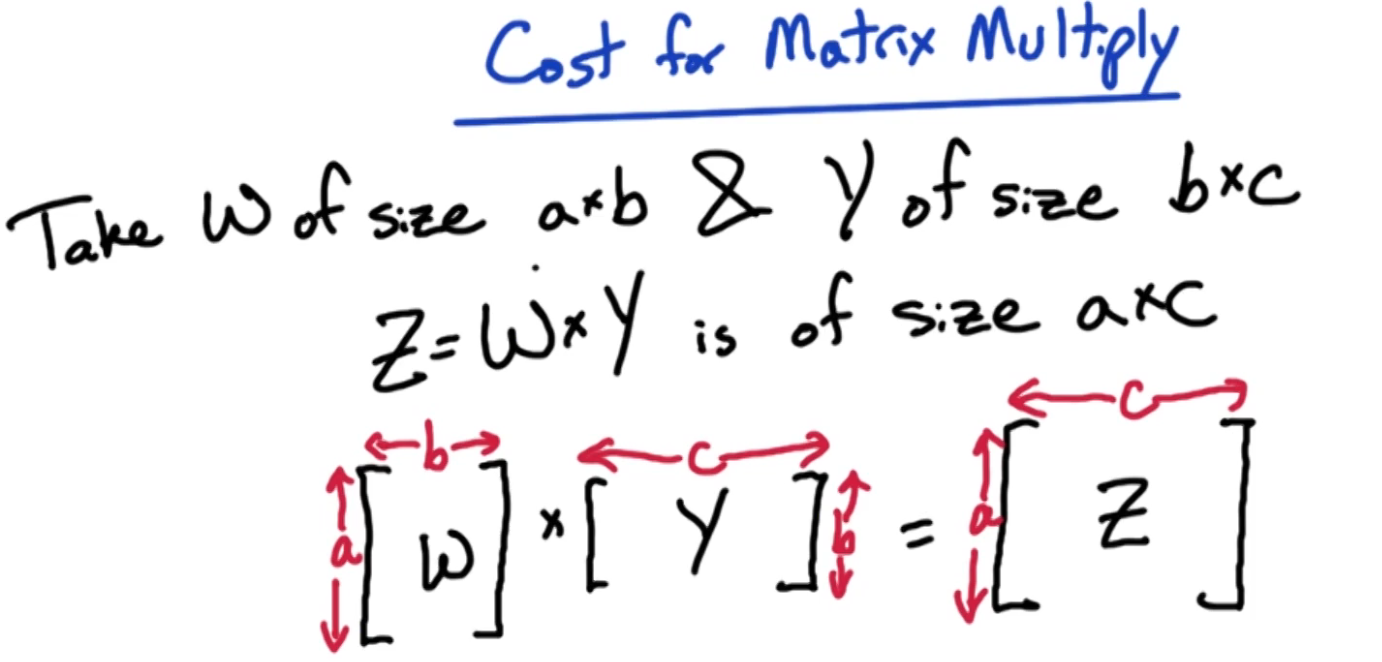 Cost for Matrix Multiply
Take W of size a×b & Y of size b×c
Z=W×Y is of size a×c
b c c
a [ W ] × [ Y ] b = a [ Z ]